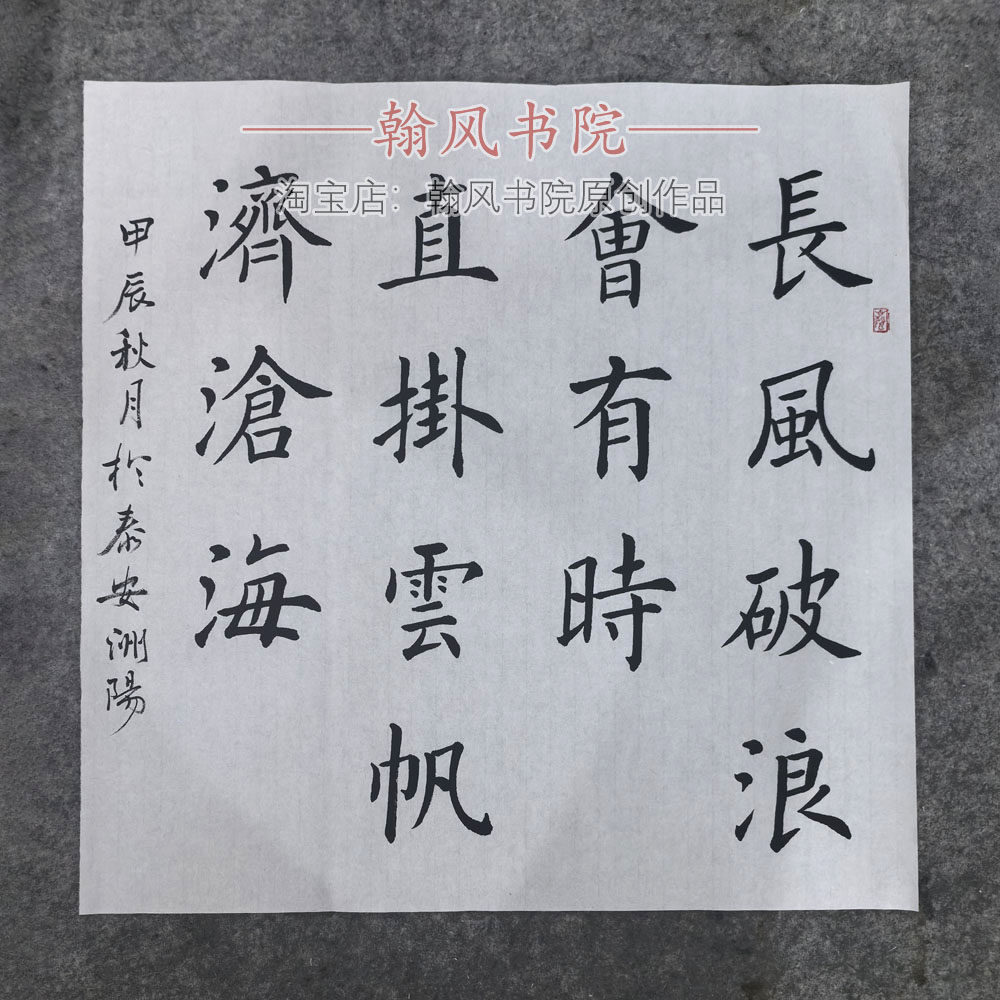 翰风书院
淘宝店：翰风书院原创作品
長風破浪
會有時
直掛雲帆
濟滄海
甲辰秋月於泰安洲陽